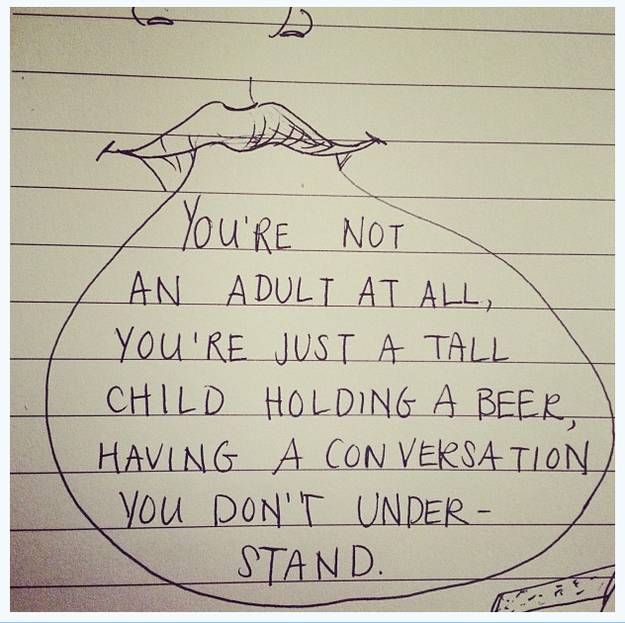 YOU'RE NOT
AN ADULT AT ALL,
YOU'RE JUST A TALL
CHILD HOLDING A BEER,
HAVING A CONVERSATION
YOU DON'T UNDER-
STAND.